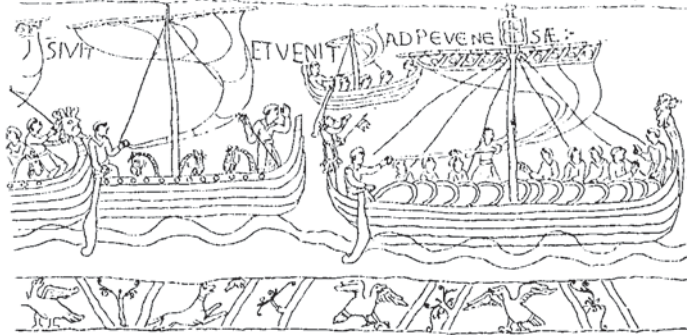 SIVIT ETVENIT ADPEVENE SÆ:-